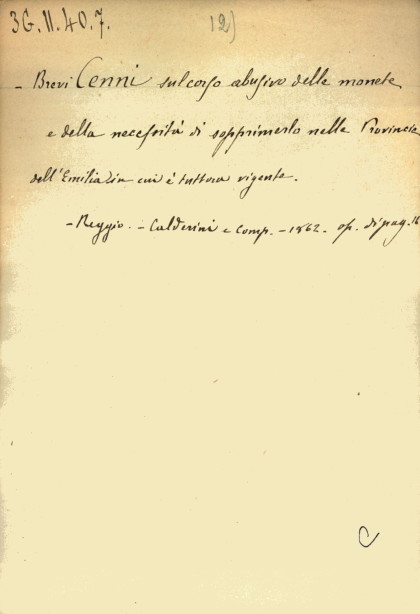 36.II.40.7. 12)
- Brevi Cenni sul corso abusivo delle monete
e della necessità di sopprimerlo nelle Provincie
dell'Emilia in cui è tuttora vigente.
- Reggio. - Calderini e Comp. - 1862. op. di pag. 16
C